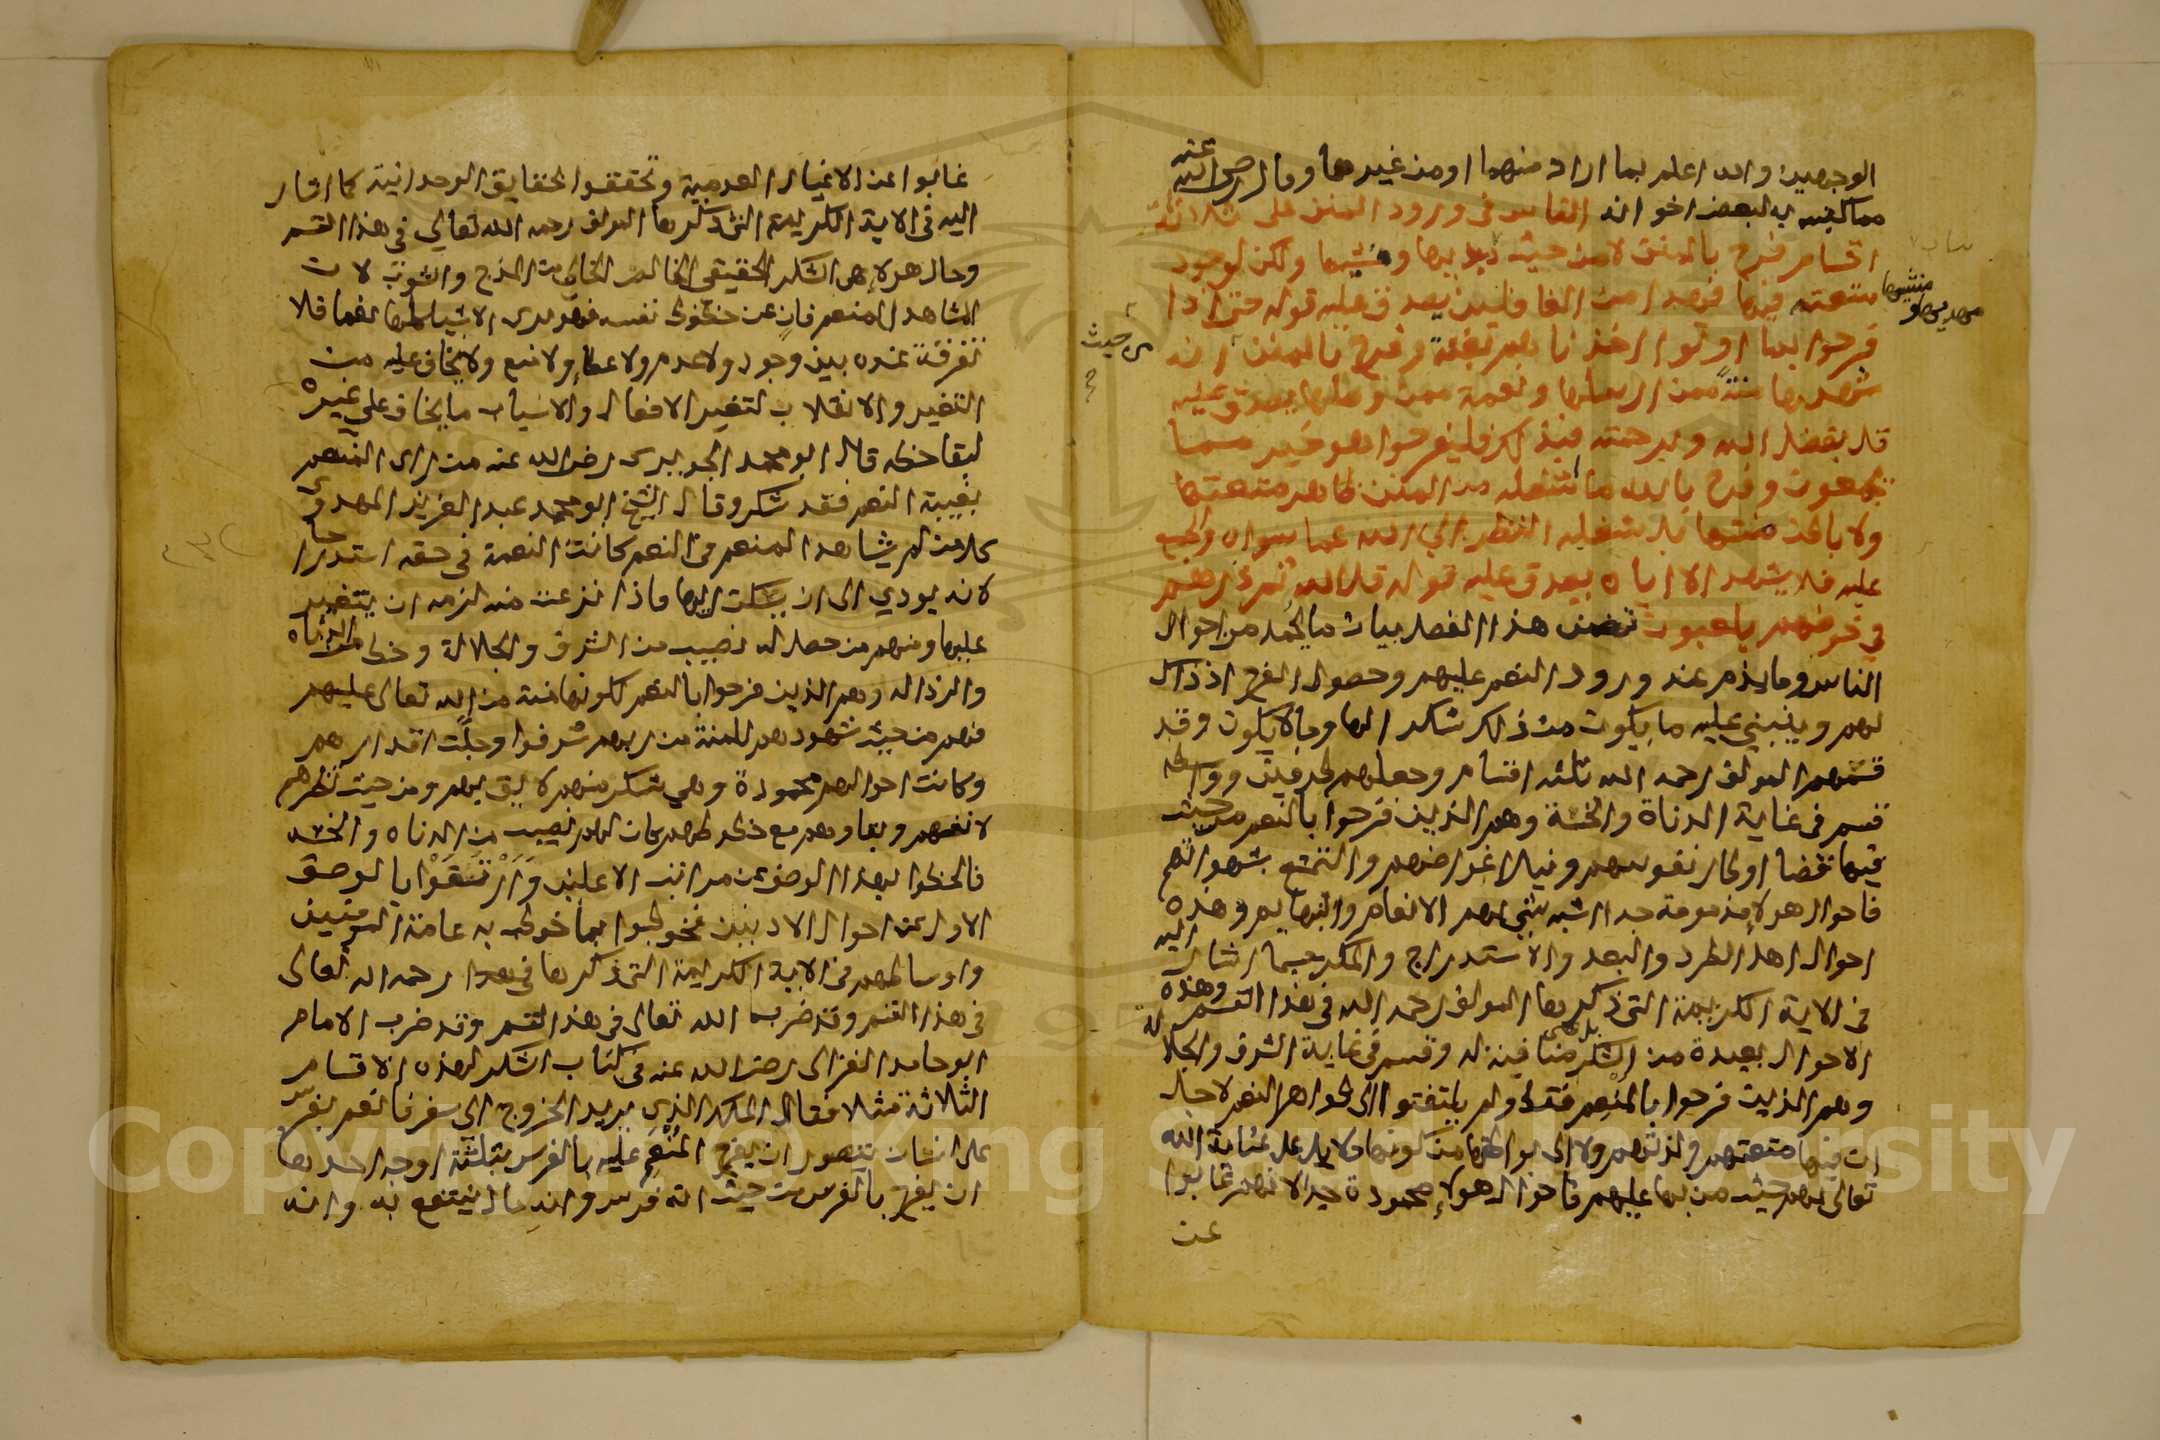 الوجهين والله اعلم بما اراد منهما او من غيرهما وقال رضي الله عنه
مما كتب به لبعض اخوانه الناس في ورود المنن على ثلاثة
اقسام فرح بالمنن لا من حيث مهديها ومنشيها ولكن لوجود
متعته فيها فهذا من الغافلين يصدق عليه قوله حتى اذا
فرحوا بما اوتوا اخذناهم بغتة وفرح بالمنن من حيث انه
شهدها منة ممن ارسلها ونعمة ممن اوصلها يصدق عليه
قل بفضل الله وبرحمته فبذلك فليفرحوا هو خير مما
يجمعون وفرح بالله ما شغله من المنن ظاهر متعتها
ولا باطن منتها بل شغله النظر الي الله عما سواه والجمع
عليه فلا يشهد الا اياه يصدق عليه قوله قل الله ثم ذرهم
في خوضهم يلعبون تضمن هذا الفصل بيان ما يحمد من احوال
الناس وما يذم عند ورود النعم عليهم وحصول الفرح اذ ذاك
لهم وينبني عليه ما يكون من ذلك شكرا لها وما لا يكون وقد
قسمهم المولف رحمه الله ثلثه اقسام وجعلهم طرفين وواسطه
قسم في غاية الدناة والخسة وهم الذين فرحوا بالنعم من حيث
فيها قضا اوطار نفوسهم ونيل اغراضهم والتمتع بشهواتهم
فاحوال هولاء مذمومة جدا اشبه شي بهم الانعام والبهايم وهذه
احوال اهل الطرد والبعد والاستدراج والمكر حسبما اشار اليه
في الاية الكريمة التي ذكرها المولف رحمه الله في هذا القسم وهذه
الاحوال بعيدة من الشكر بل هي منافية له وقسم في غاية الشرف والجلالة
وهم الذين فرحوا بالمنعم فقط ولم يلتفتوا الى ظواهر النعم لاجل
ان فيها متعتهم ولذتهم ولا الى بواطنها من كونها دلايل على عناية الله
تعالى بهم حيث من بها عليهم فاحوال هولاء محمودة جدا لانهم غابوا
عن
منشيها
مهديها و
من حيث
غابوا عن الاغيار العدمية وتحققوا بحقايق الوحدانية كما اشار
اليه في الاية الكريمة التي ذكرها المولف رحمه الله تعالي في هذا القسم
وحال هولاء هي الشكر الحقيقي الخالص الخالي من المزج والشوب لان
المشاهد للمنعم فانٍ عن حظوظ نفسه فهو يرى الاشيا كلها نعما فلا
تفرقة عنده بين وجود ولا عدم ولا عطاء ولا منع ولا يخاف عليه من
التغير والانقلاب لتغير الافعال والاسباب ما يخاف على غيره
لبقا حظه قال ابو محمد الجريرى رضي الله عنه من راى المنعم
بغيبة النعم فقد شكر وقال الشيخ ابو محمد عبد العزيز المهدوى
كل من لم يشاهد المنعم في النعم كانت النعمة في حقه استدراجا
لانه يودي الى ان يسكن اليها فاذا نزعت منه لزمه ان يتغير
عليها ومنهم من حصل له نصيب من الشرف والجلالة وحظ من الدناه
والرذاله وهم الذين فرحوا بالنعم لكونها منة من الله تعالى عليهم
فهم من حيث شهودهم للمنة من ربهم شرفوا وجلّت اقدارهم
وكانت احوالهم محمودة وهي شكر منهم لايق بهم ومن حيث نظرهم
لانفسهم وبقاوهم مع حظوظهم كان لهم نصيب من الدناه والخسه
فانحطوا بهذا الوصف عن مراتب الاعلين وارْتَقَوْا بالوصف
الاول عن احوال الادنين فخوطبوا بما خوطب به عامة المومنين
واوساطهم في الاية الكريمة التي ذكرها رحمه الله تعالى
في هذا القسم وقد ضرب الله تعالى في هذا القسم وقد ضرب الامام
ابو حامد الغزالى رضي الله عنه في كتاب الشكر لهذه الاقسام
الثلاثة مثلا فقال الملك الذي يريد الخروج الي سفر فانعم بفرس
على انسان يتصور ان يفرح المُنْعَم عليه بالفرس بثلثة اوجه احدها
ان يفرح بالفرس من حيث انه فرس وانه مال ينتفع به وانه